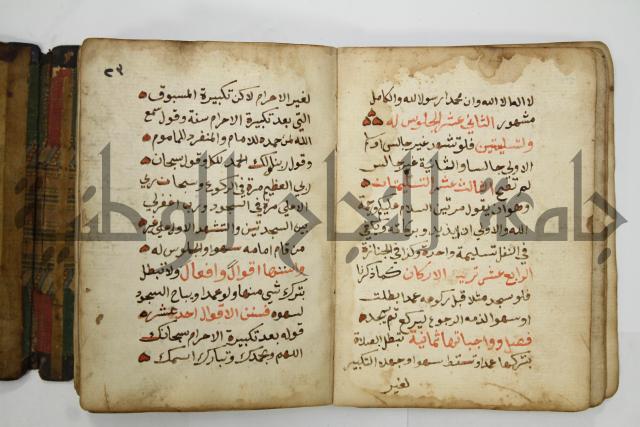 لا اله الا الله وان محمدا رسول الله والكامل
مشهور الثاني عشر الجلوس له
وللتسليمتين فلو تشهد غير جالس او سلم
الاولى جالسا والثانية غير جالس
لم تصح الثالث عشر التسليمتان
وهو ان يقول مرتين السلام عليكم ورحمة
الله والاولى ان لا يزيد وبركاته ويكفي
في النفل تسليمة واحدة وكذا في الجنازة
الرابع عشر ترتيب الاركان كما ذكرنا
فلو سجد مثلا قبل ركوعه عمدا بطلت
او سهوا لزمه الرجوع ليركع ثم يسجد
فصل وواجباتها ثمانية تبطل الصلاة
بتركها عمدا وتسقط سهوا وجهلا التكبير
لغير
٢٣
لغير الاحرام لاكن تكبيرة المسبوق
التي بعد تكبيرة الاحرام سنة وقول سمع
الله لمن حمده للامام والمنفرد لا للماموم
وقول ربنا ولك الحمد للكل وقول سبحان
ربي العظيم مرة في الركوع وسبحان ربي
الاعلى مرة في السجود ورب اغفر لي
بين السجدتين والتشهد الاول على غير
من قام امامه سهوا والجلوس له
وسننها اقوال وافعال ولا تبطل
بترك شي منها ولو عمدا ويباح السجود
لسهوه فسنن الاقوال احد عشر
قوله بعد تكبيرة الاحرام سبحانك
اللهم وبحمدك وتبارك اسمك
جامعة النجاح الوطنية